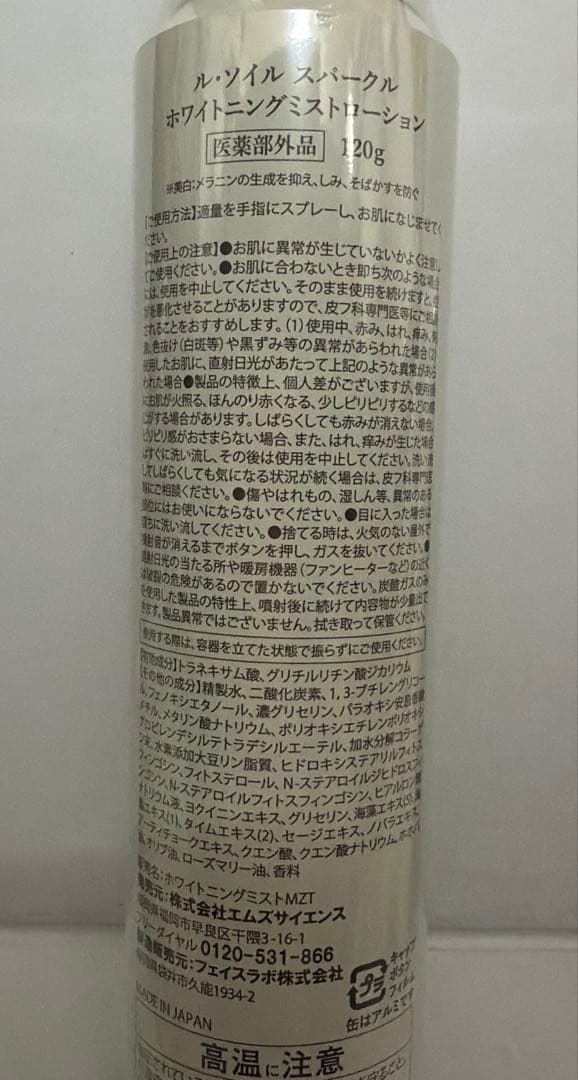 ル・ソイル スパークル
ホワイトニングミストローション
医薬部外品 120g
※美白:メラニンの生成を抑え、しみ、そばかすを防ぐ
【ご使用方法】適量を手指にスプレーし、お肌になじませてく
ださい。
【ご使用上の注意】●お肌に異常が生じていないかよく注意し
てご使用ください。●お肌に合わないとき即ち次のような場合
には、使用を中止してください。そのまま使用を続けますと、
を悪化させることがありますので、皮フ科専門医等にご相談
されることをおすすめします。(1)使用中、赤み、はれ、痒み、
色抜け(白斑等)や黒ずみ等の異常があらわれた場合(2)
使用したお肌に、直射日光があたって上記のような異常があら
われた場合●製品の特徴上、個人差がございますが、使用
にお肌が火照る、ほんのり赤くなる、少しピリピリするなどの
がする場合があります。しばらくしても赤みが消えない場合
ピリピリ感がおさまらない場合、また、はれ、痒みが生じた場合
はすぐに洗い流し、その後は使用を中止してください。洗い流
してしばらくしても気になる状況が続く場合は、皮フ科専門医
等にご相談ください。●傷やはれもの、湿しん等、異常のある
部位にはお使いにならないでください。●目に入った場合は
直ちに洗い流してください。●捨てる時は、火気のない屋外で
噴射音が消えるまでボタンを押し、ガスを抜いてください。●
直射日光の当たる所や暖房機器(ファンヒーターなど)の近く
は破裂の危険があるので置かないでください。炭酸ガスのみ
を使用した製品の特性上、噴射後に続けて内容物が少量出て
きます。製品異常ではございません。拭き取って保管ください。
使用する際は、容器を立てた状態で振らずにご使用ください。
【有効成分】トラネキサム酸、グリチルリチン酸ジカリウム
【その他の成分】精製水、二酸化炭素、1,3-ブチレングリコー
ル、フェノキシエタノール、濃グリセリン、パラオキシ安息香酸
メチル、メタリン酸ナトリウム、ポリオキシエチレンポリオキシ
プロピレンデシルテトラデシルエーテル、加水分解コラーゲン
末、水素添加大豆リン脂質、ヒドロキシステアリルフィトス
フィンゴシン、フィトステロール、N-ステアロイルジヒドロスフィ
ンゴシン、N-ステアロイルフィトスフィンゴシン、ヒアルロン酸
ナトリウム液、ヨクイニンエキス、グリセリン、海藻エキス(5)、
エキス(1)、タイムエキス(2)、セージエキス、ノバラエキス、
アーティチョークエキス、クエン酸、クエン酸ナトリウム、ホホバ
油、オリブ油、ローズマリー油、香料
販売名:ホワイトニングミストMZT
発売元:株式会社エムズサイエンス
福岡県福岡市早良区干隈3-16-1
フリーダイヤル 0120-531-866
製造販売元:フェイスラボ株式会社
静岡県袋井市久能1934-2
MADE IN JAPAN
プラ
キャップ
ボタン
フィルム
缶はアルミです
高温に注意